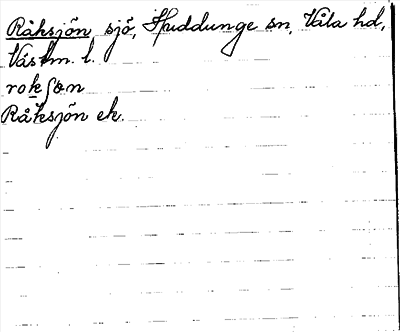 Råksjön, sjö, Huddunge sn, Våla hd,
Västm. l.
rokʃøn
Råksjön ek.